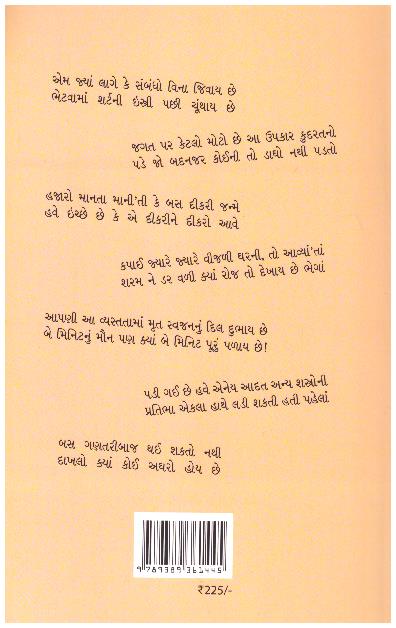 એમ જ્યાં લાગે કે સંબંધો વિના જિવાય છે
ભેટવામાં શર્ટની ઇસ્ત્રી પછી ચૂંથાય છે
જગત પર કેટલો મોટો છે આ ઉપકાર કુદરતનો
પડે જો બદનજર કોઈની તો ડાઘો નથી પડતો
હજારો માનતા માની'તી કે બસ દીકરી જન્મે
હવે ઇચ્છે છે કે એ દીકરીને દીકરો આવે
કપાઈ જ્યારે જ્યારે વીજળી ઘરની, તો આવ્યાં'તાં
શરમ ને ડર વળી ક્યાં રોજ તો દેખાય છે ભેગાં
આપણી આ વ્યસ્તતામાં મૃત સ્વજનનું દિલ દુભાય છે
બે મિનિટનું મૌન પણ ક્યાં બે મિનિટ પૂરું પળાય છે!
પડી ગઈ છે હવે એનેય આદત અન્ય શસ્ત્રોની
પ્રતિભા એકલા હાથે લડી શકતી હતી પહેલાં
બસ ગણતરીબાજ થઈ શકતો નથી
દાખલો ક્યાં કોઈ અઘરો હોય છે
9 789389 361445
₹225/-